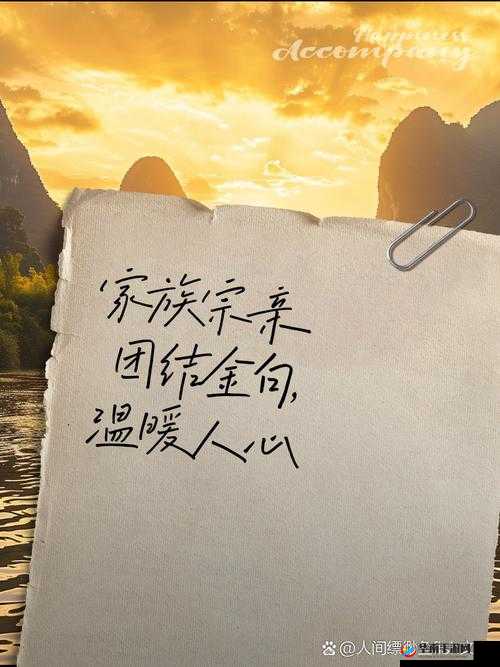 Happiness
Accompany
家族宗亲
团结金句,
温暖人心
@人间缥缈